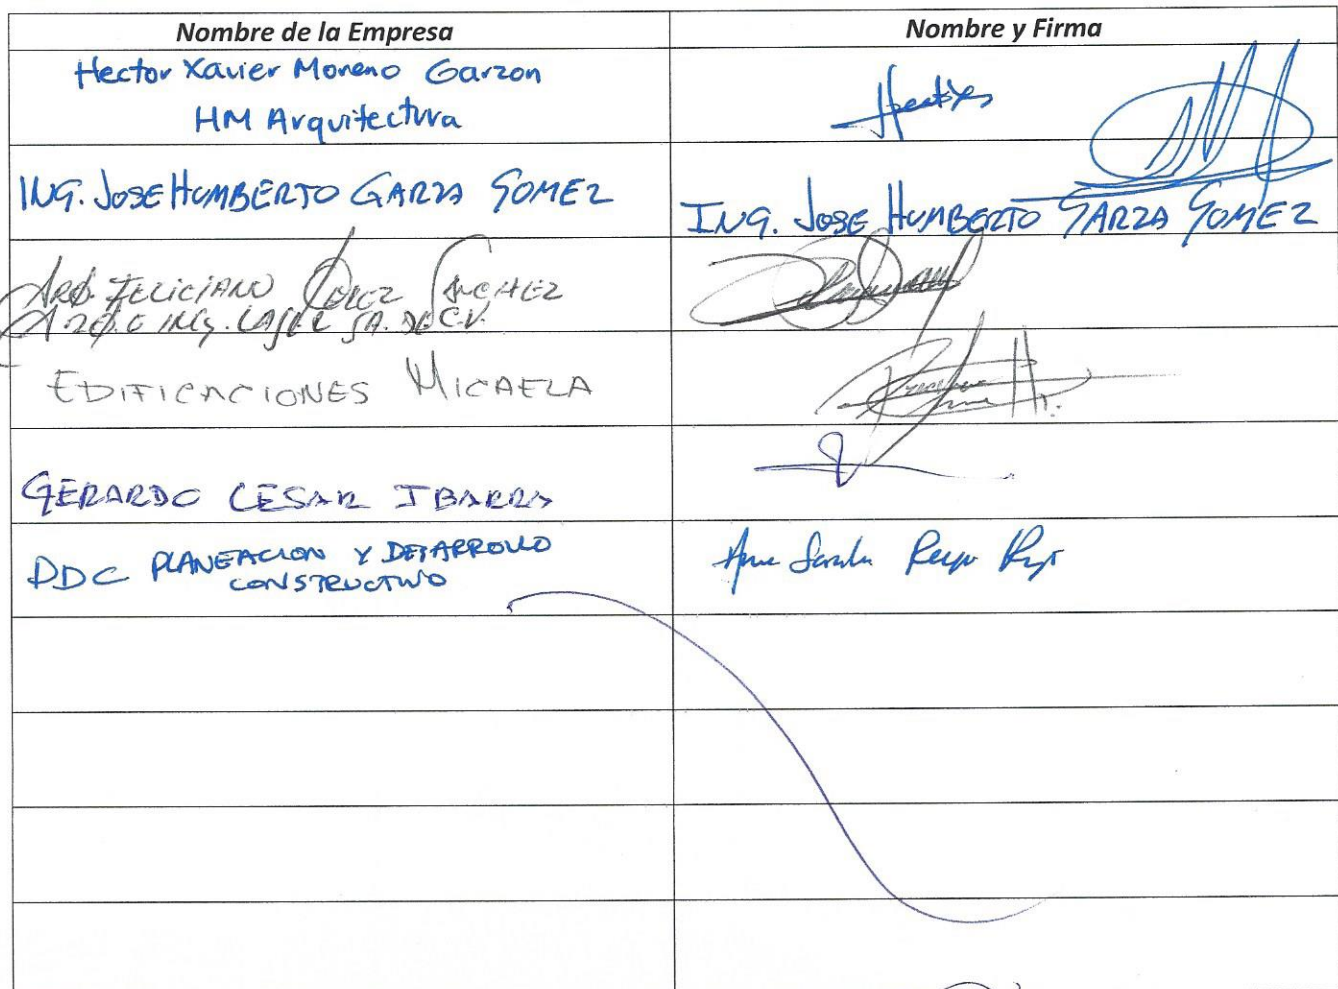 Nombre de la Empresa Nombre y Firma
Hector Xavier Moreno Garzon
HM Arquitectura
ING. JOSE HUMBERTO GARZA GOMEZ ING. JOSE HUMBERTO GARZA GOMEZ
ARQ. FELICIANO SANCHEZ
ARQ. E ING. SA. DE C.V.
EDIFICACIONES MICAELA
GERARDO CESAR IBARRA
DDC PLANEACION Y DESARROLLO
CONSTRUCTIVO